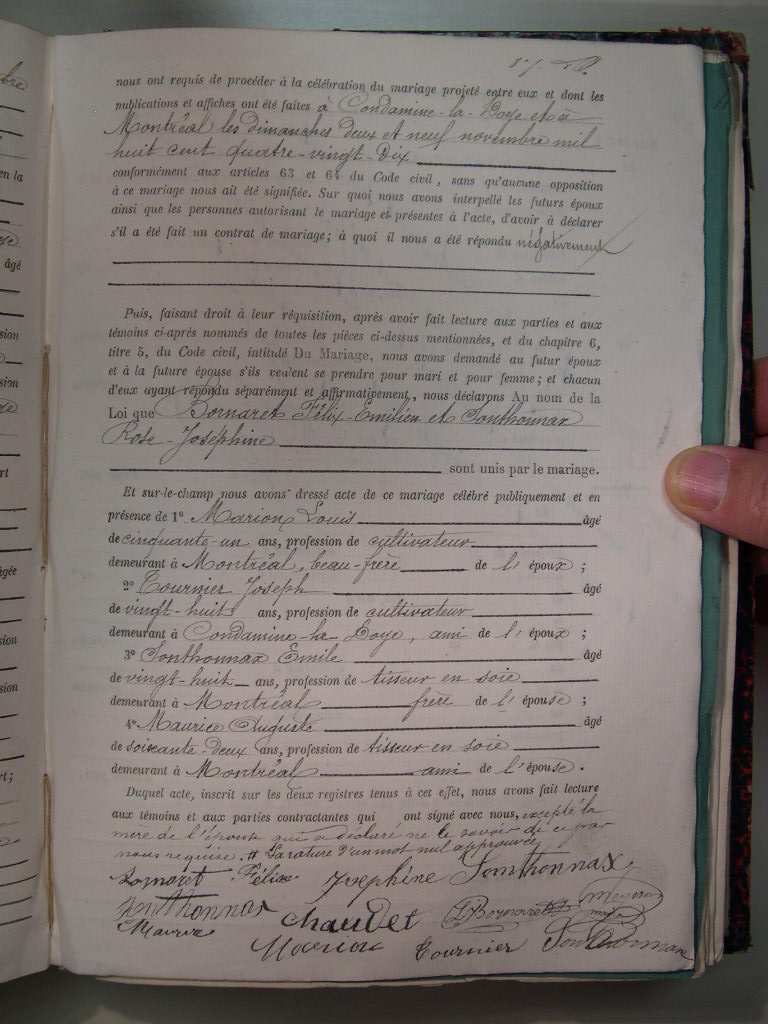 nous ont requis de procéder à la célébration du mariage projeté entre eux et dont les
publications et affiches ont été faites à Condamine-la-Doye et à
Montréal les dimanches deux et neuf novembre mil
huit cent quatre-vingt-dix
conformément aux articles 63 et 64 du Code civil, sans qu'aucune opposition
à ce mariage nous ait été signifiée. Sur quoi nous avons interpellé les futurs époux
ainsi que les personnes autorisant le mariage et présentes à l'acte, d'avoir à déclarer
s'il a été fait un contrat de mariage; à quoi il nous a été répondu négativement
Puis, faisant droit à leur réquisition, après avoir fait lecture aux parties et aux
témoins ci-après nommés de toutes les pièces ci-dessus mentionnées, et du chapitre 6,
titre 5, du Code civil, intitulé Du Mariage, nous avons demandé au futur époux
et à la future épouse s'ils veulent se prendre pour mari et pour femme; et chacun
d'eux ayant répondu séparément et affirmativement, nous déclarons Au nom de la
Loi que Bornaret Félix-Emilien et Sonthonnax
Rose-Joséphine
sont unis par le mariage.
Et sur-le-champ nous avons dressé acte de ce mariage célébré publiquement et en
présence de 1° Marion Louis âgé
de cinquante-un ans, profession de cultivateur
demeurant à Montréal, beau-frère de l'époux;
2° Tournier Joseph âgé
de vingt-huit ans, profession de cultivateur
demeurant à Condamine-la-Doye, ami de l'époux;
3° Sonthonnax Emile âgé
de vingt-huit ans, profession de tisseur en soie
demeurant à Montréal frère de l'épouse;
4° Maurice Auguste âgé
de soixante-deux ans, profession de tisseur en soie
demeurant à Montréal ami de l'épouse.
Duquel acte, inscrit sur les deux registres tenus à cet effet, nous avons fait lecture
aux témoins et aux parties contractantes qui ont signé avec nous, excepté la
mère de l'épouse qui a déclaré ne le savoir de ce par
nous requise. # La rature d'un mot nul approuvée
Bornaret Félix Joséphine Sonthonnax
Sonthonnax Chaudet Bornaret
Maurice Marion Tournier Sonthonnax